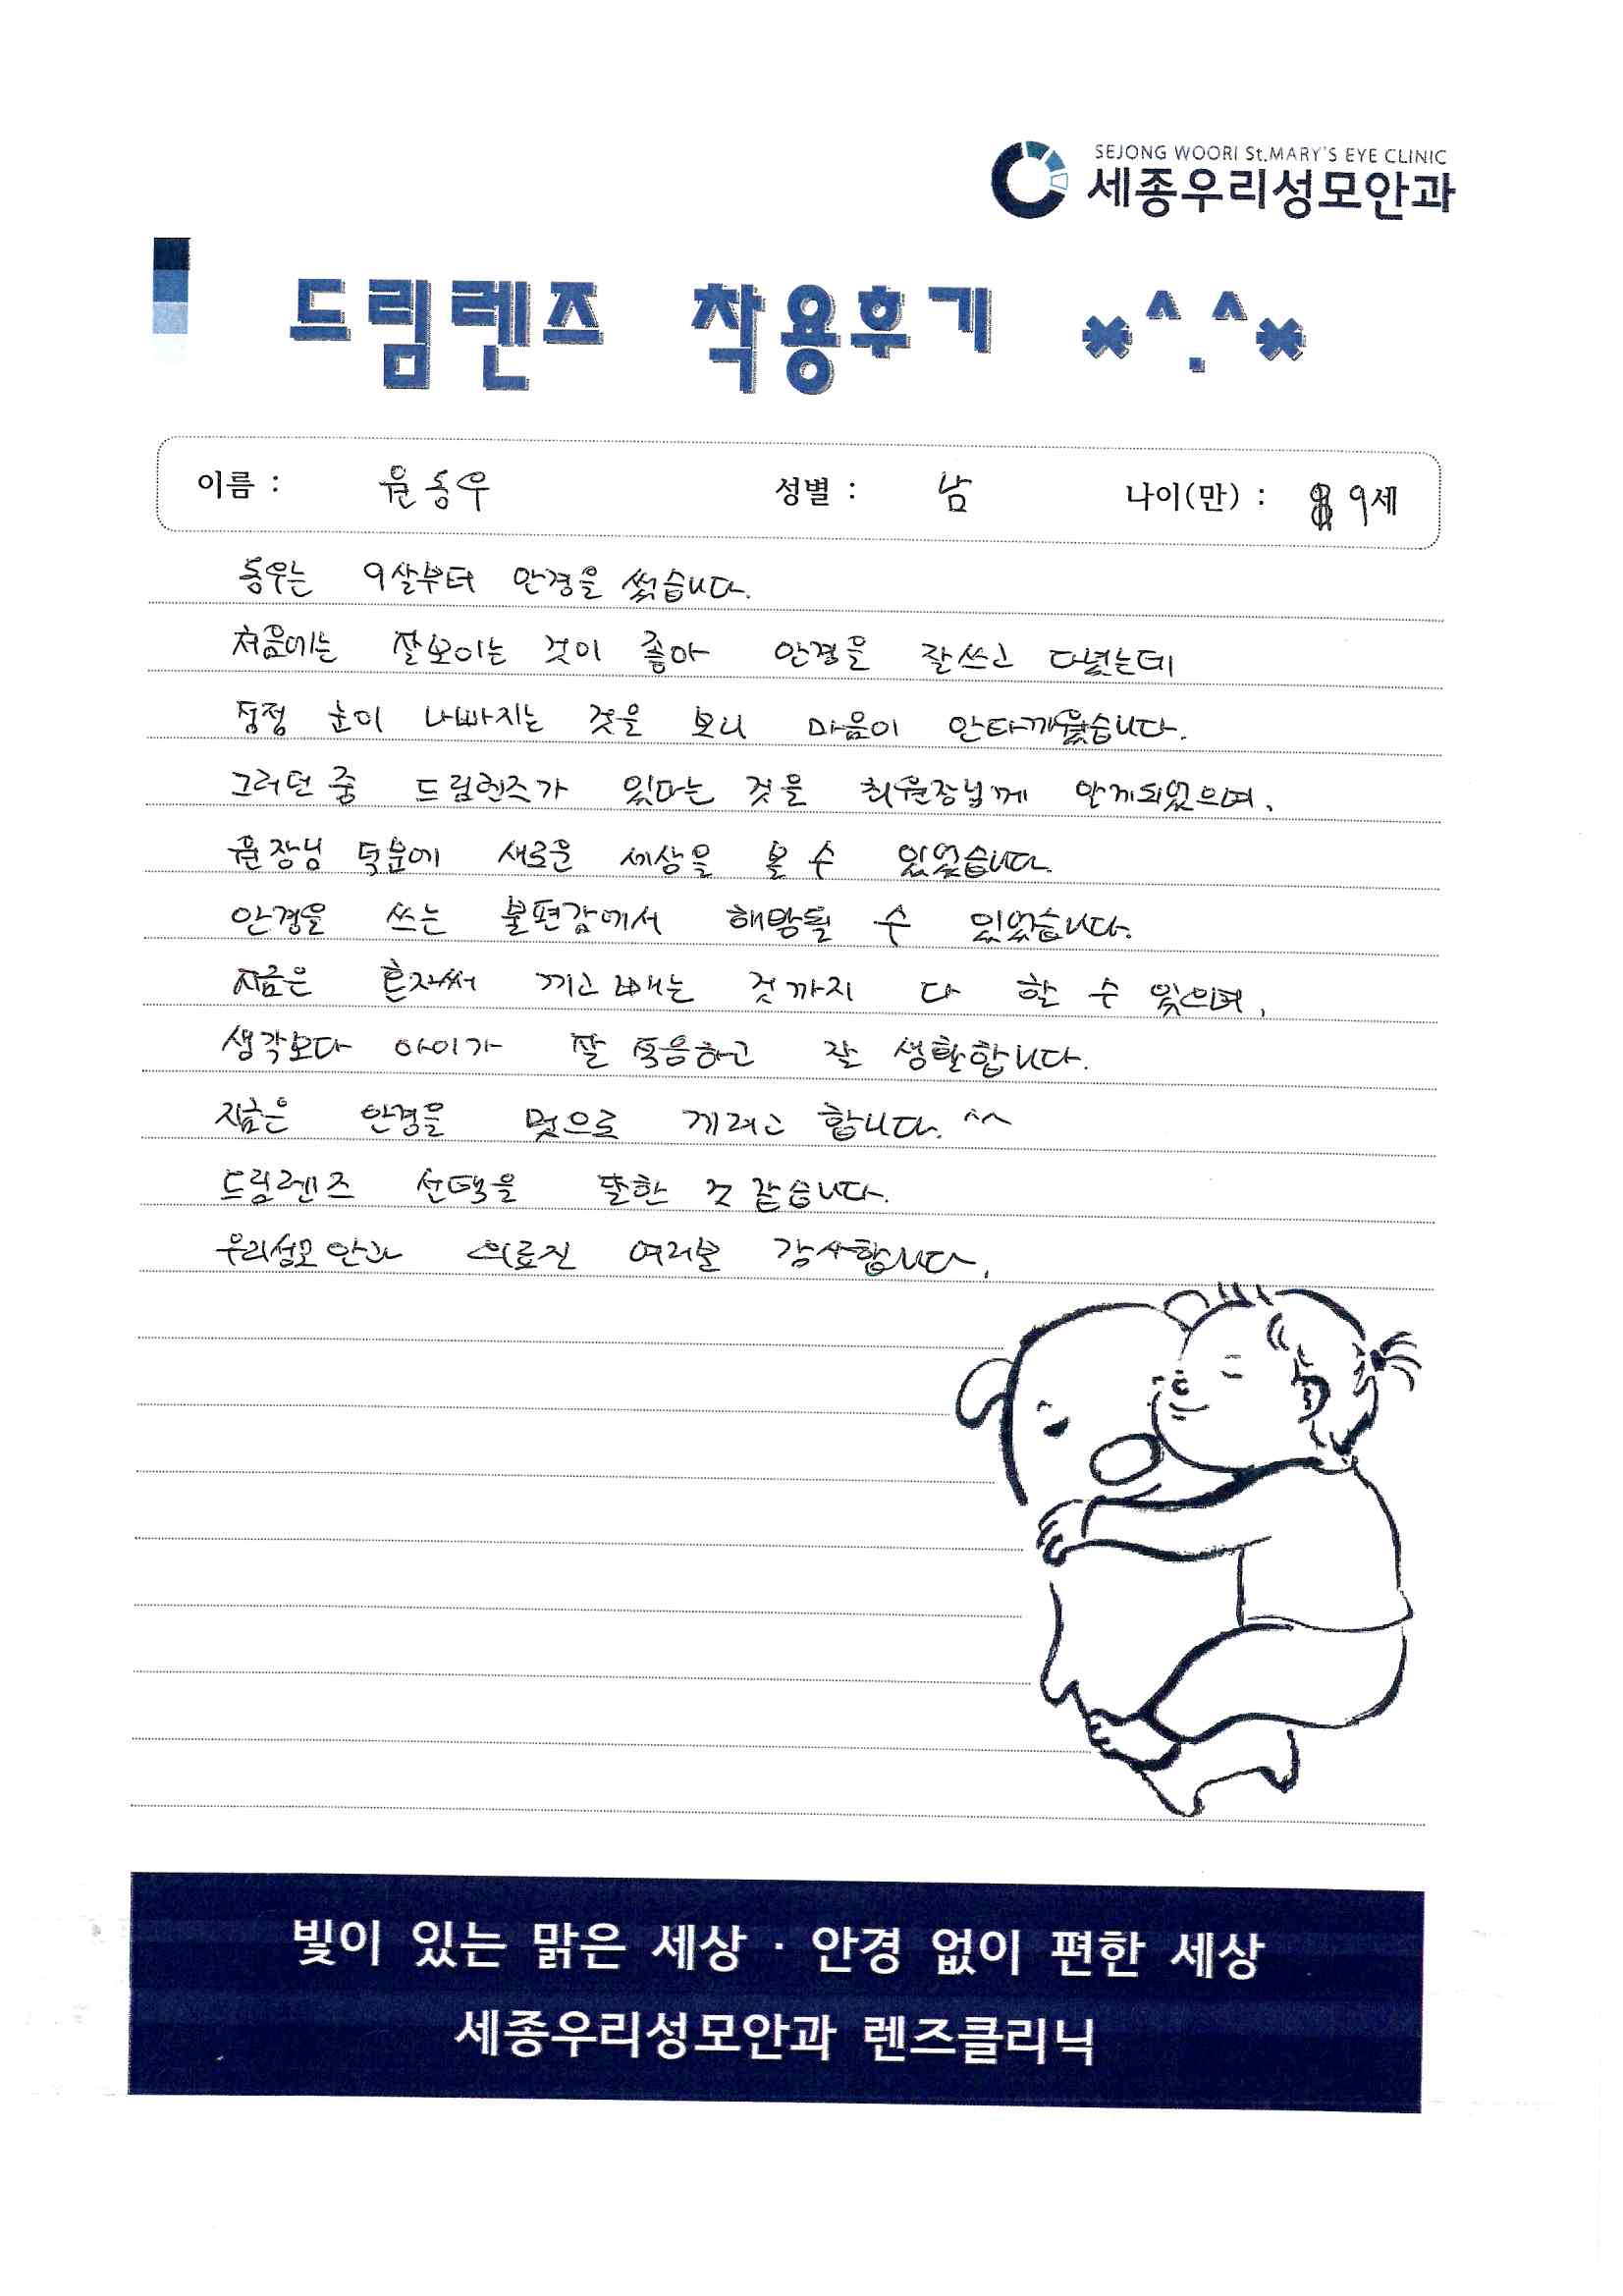 SEJONG WOORI St.MARY'S EYE CLINIC
세종우리성모안과
드림렌즈 착용후기 *^.^*
이름 : 윤동우 성별 : 남 나이(만) : 9세
동우는 9살부터 안경을 썼습니다.
처음에는 잘보이는 것이 좋아 안경을 잘쓰고 다녔는데
점점 눈이 나빠지는 것을 보니 마음이 안타까웠습니다.
그러던 중 드림렌즈가 있다는 것을 최원장님께 알게되었으며,
원장님 덕분에 새로운 세상을 볼 수 있었습니다.
안경을 쓰는 불편감에서 해방될 수 있었습니다.
지금은 혼자써 끼고 빼는 것까지 다 할 수 있으며,
생각보다 아이가 잘 적응하고 잘 생활합니다.
지금은 안경을 멋으로 끼려고 합니다. ^^
드림렌즈 선택을 잘한 것 같습니다.
우리성모안과 의료진 여러분 감사합니다.
빛이 있는 맑은 세상 · 안경 없이 편한 세상
세종우리성모안과 렌즈클리닉